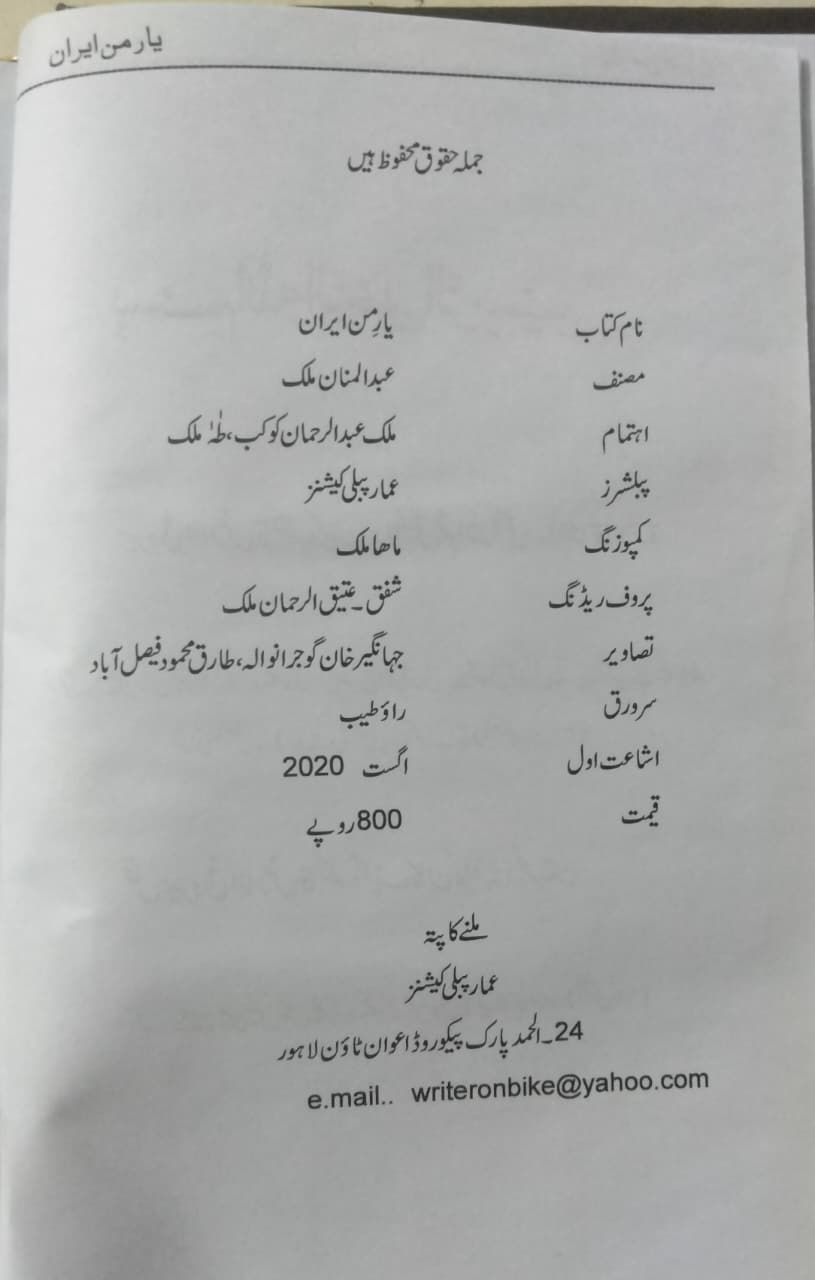 یار من ایران
جملہ حقوق محفوظ ہیں
نام کتاب یارِمن ایران
مصنف عبدالمنان ملک
اہتمام ملک عبدالرحمان کوکب، طٰہٰ ملک
پبلشرز عمار پبلی کیشنز
کمپوزنگ ماھا ملک
پروف ریڈنگ شفق۔ عتیق الرحمان ملک
تصاویر جہانگیر خان گوجرانوالہ، طارق محمود فیصل آباد
سرورق راؤ طیب
اشاعت اول اگست 2020
قیمت 800 روپے
ملنے کا پتہ
عمار پبلی کیشنز
24۔ الحمد پارک پیکو روڈ اعوان ٹاؤن لاہور
e.mail.. writeronbike@yahoo.com